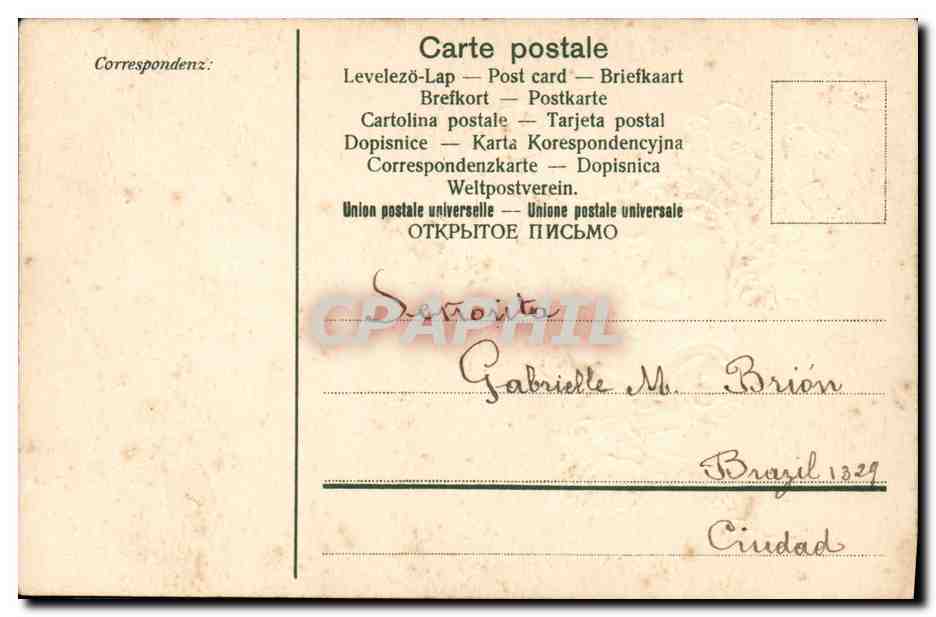 Correspondenz:
Carte postale
Levelezö-Lap — Post card — Briefkaart
Brefkort — Postkarte
Cartolina postale — Tarjeta postal
Dopisnice — Karta Korespondencyjna
Correspondenzkarte — Dopisnica
Weltpostverein.
Union postale universelle — Unione postale universale
ОТКРЫТОЕ ПИСЬМО
Señorita
CPAPHIL
Gabrielle M. Brión
Brazil 1329
Ciudad